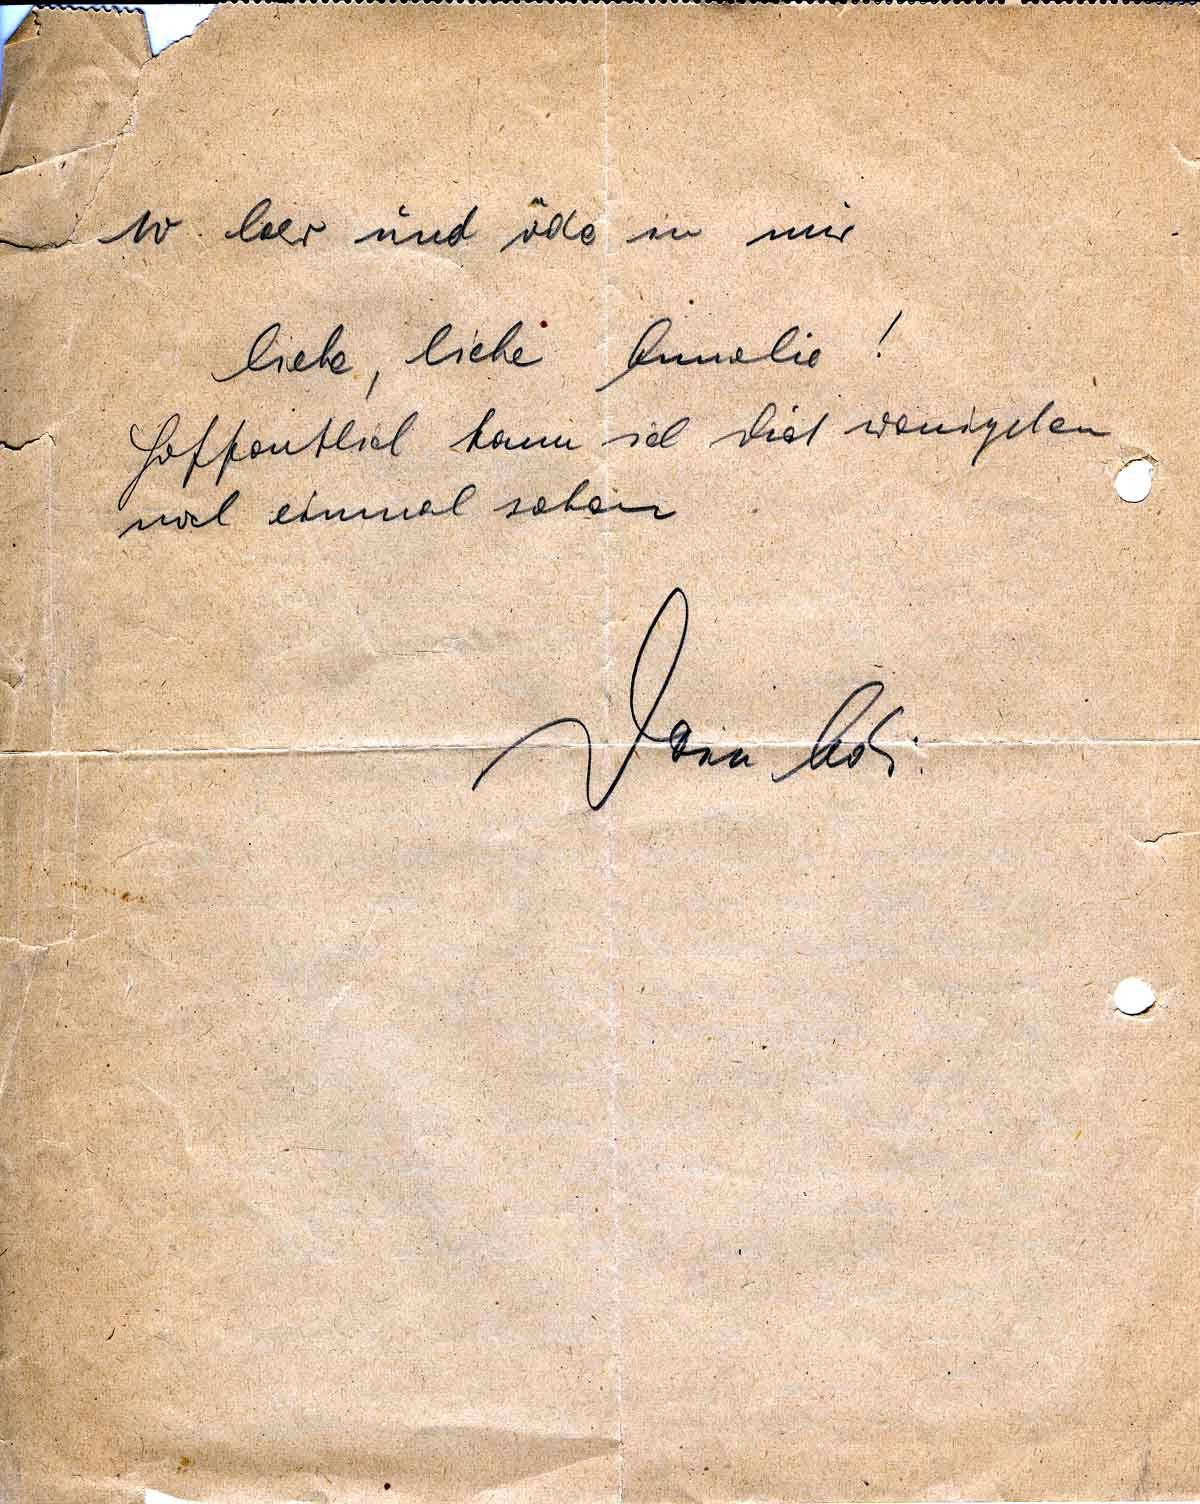 so leer und öde in mir
liebe, liebe Annelie!
Hoffentlich kann ich dich wenigsten
noch einmal sehen
Dein Adi.